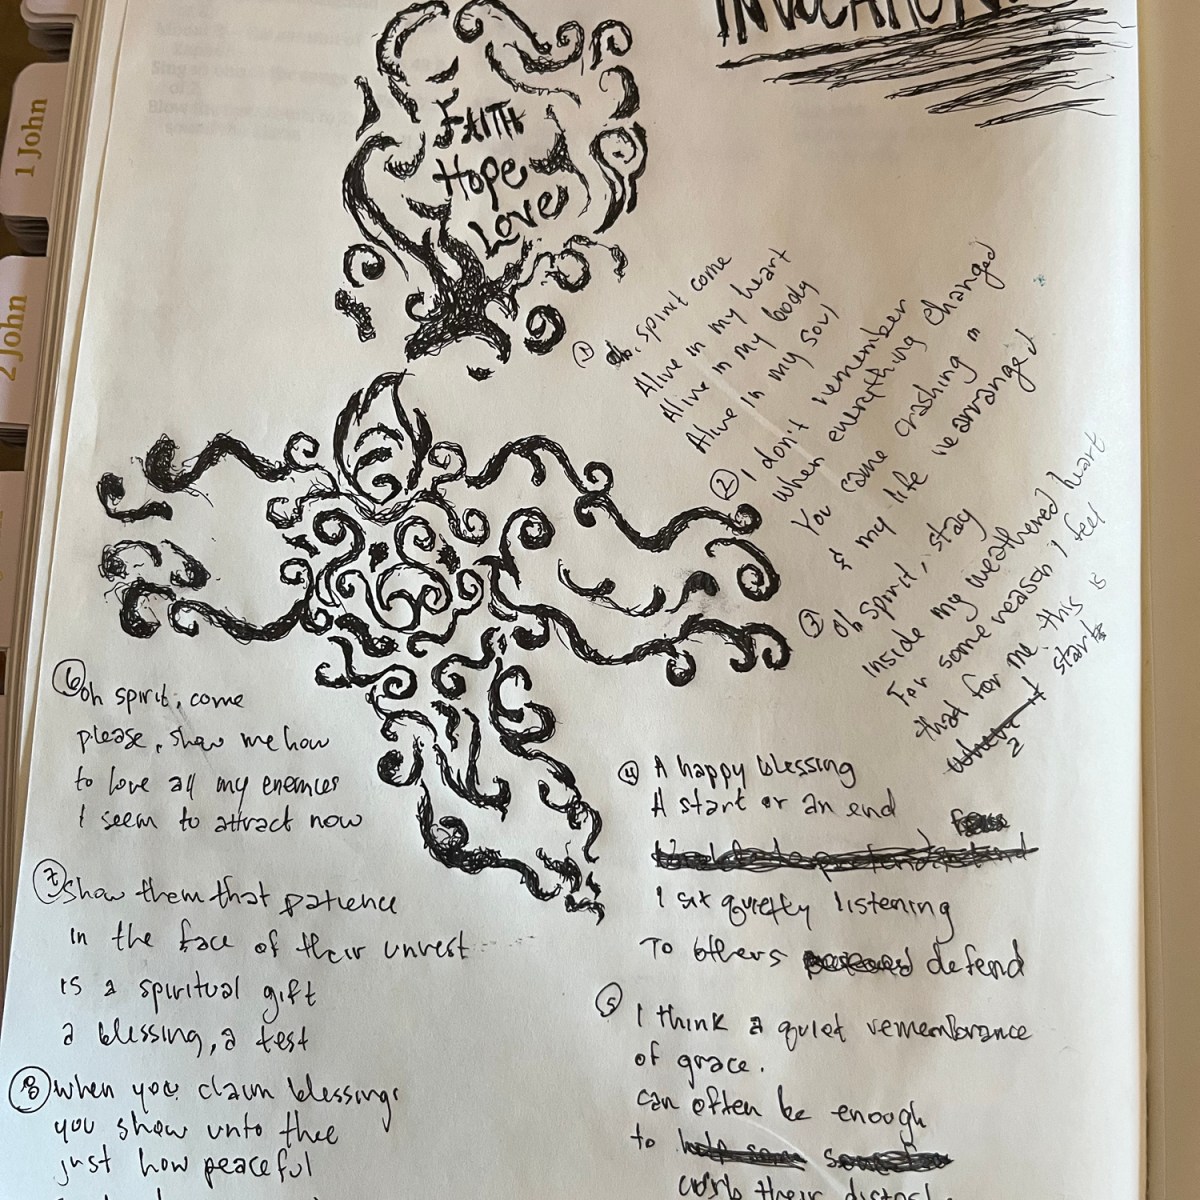 INVOCATION
FAITH
Hope
Love
1 John
2 John
① oh, spirit come
Alive in my heart
Alive in my body
Alive in my soul
② I don't remember
when everything changed
You came crashing in
& my life rearranged
③ Oh Spirit, stay
inside my weathered heart
For some reason I feel
that for me, this is
a start
④ A happy blessing
A start or an end
I sit quietly listening
To others defend
⑤ I think a quiet remembrance
of grace.
can often be enough
to
curb their
⑥ oh spirit, come
please, show me how
to love all my enemies
I seem to attract now
⑦ show them that patience
in the face of their unrest
is a spiritual gift
a blessing, a test
⑧ when you claim blessings
you show unto thee
just how peaceful